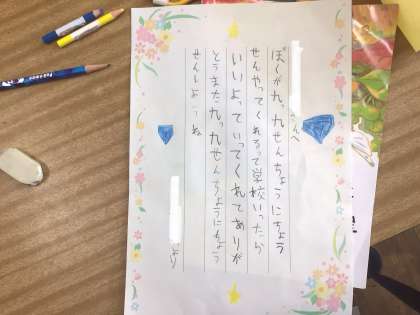 さんへ
ぼくが九九せんちょうにちょう
せんやってくるって学校いったら
いいよっていってくれてありが
とうまた九九せんちょうにちょう
せんしようね
より